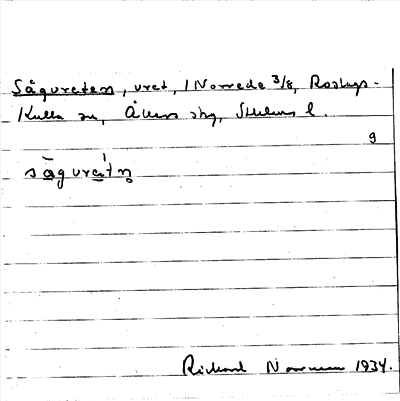 Sågvreten, vret, 1 Norrede 3/8, Roslags-
Kulla sn, Åkers skg, Sthlms l.
9
sågvretn
Richard Norrman 1934.